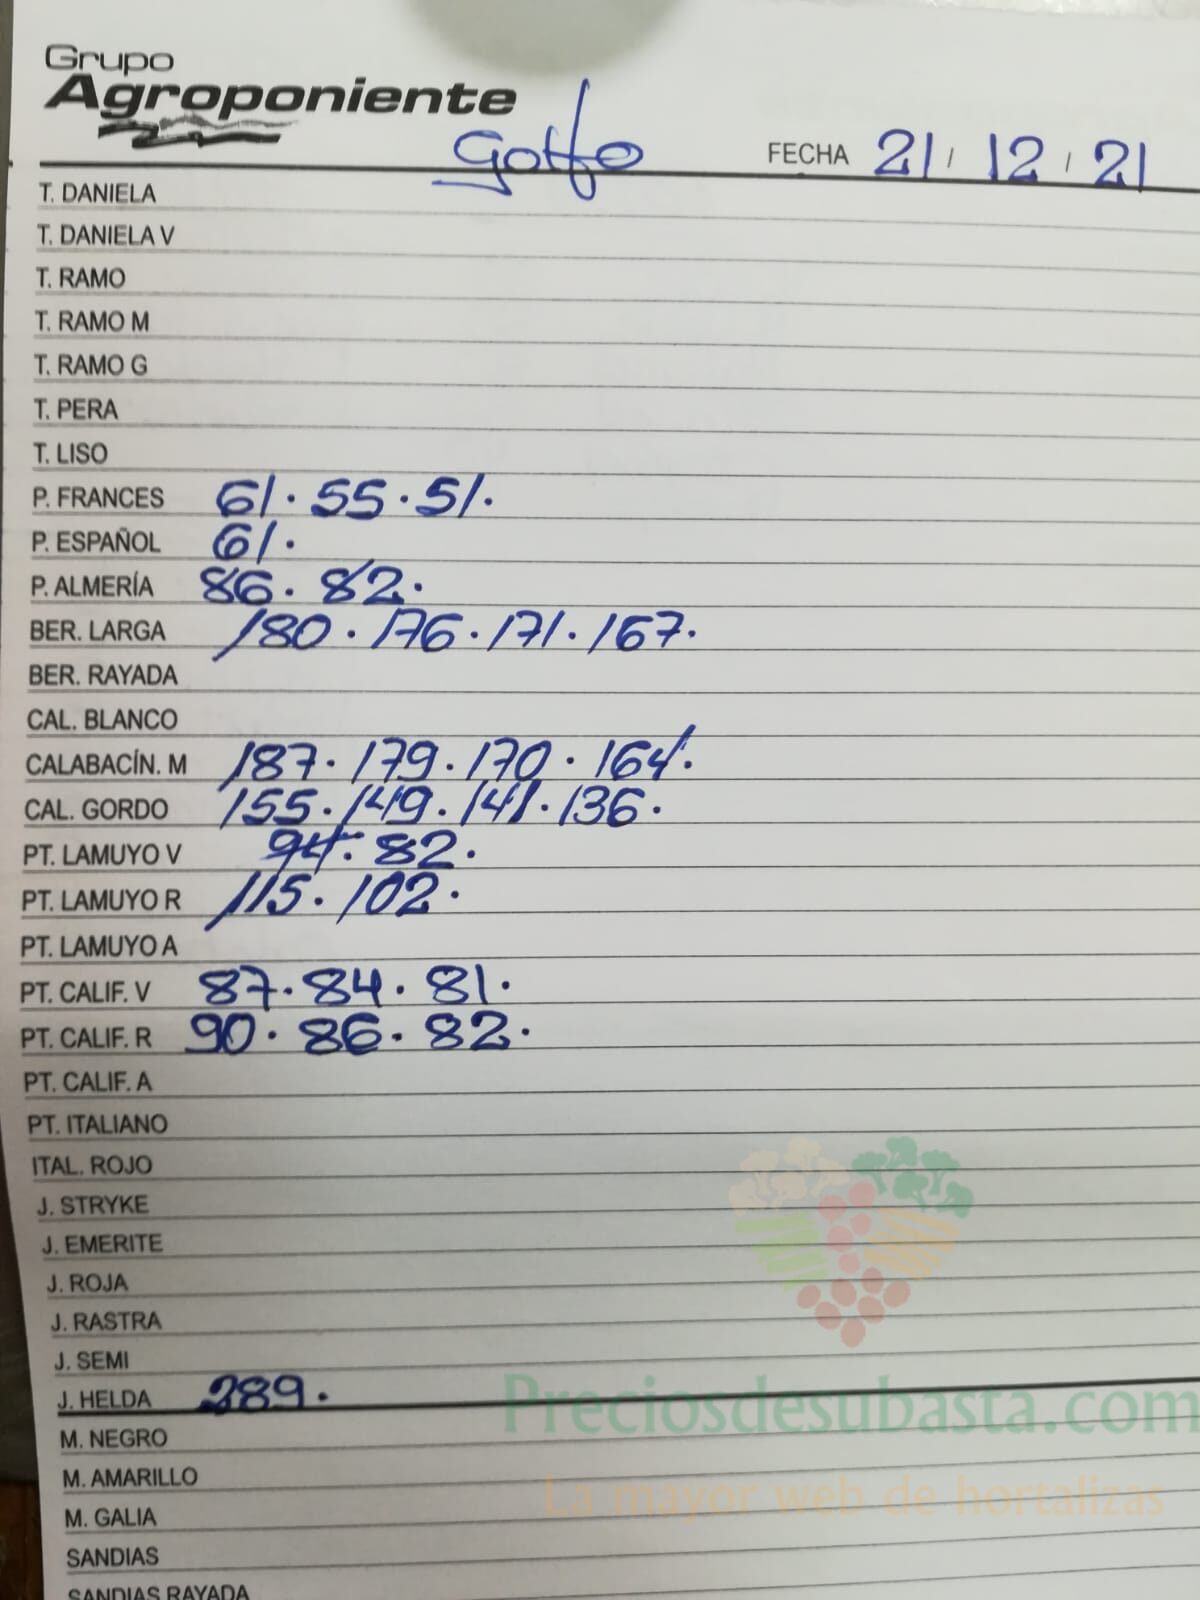 Grupo
Agroponiente
Golfo FECHA 21 / 12 / 21
T. DANIELA
T. DANIELA V
T. RAMO
T. RAMO M
T. RAMO G
T. PERA
T. LISO
P. FRANCES 61. 55. 51.
P. ESPAÑOL 61.
P. ALMERÍA 86. 82.
BER. LARGA 180. 176. 171. 167.
BER. RAYADA
CAL. BLANCO
CALABACÍN. M 187. 179. 170. 164.
CAL. GORDO 155. 149. 141. 136.
PT. LAMUYO V 94. 82.
PT. LAMUYO R 115. 102.
PT. LAMUYO A
PT. CALIF. V 87. 84. 81.
PT. CALIF. R 90. 86. 82.
PT. CALIF. A
PT. ITALIANO
ITAL. ROJO
J. STRYKE
J. EMERITE
J. ROJA
J. RASTRA
J. SEMI
J. HELDA 289.
M. NEGRO
M. AMARILLO
M. GALIA
SANDIAS
SANDIAS RAYADA
Preciosdesubasta.com
La mayor web de hortalizas